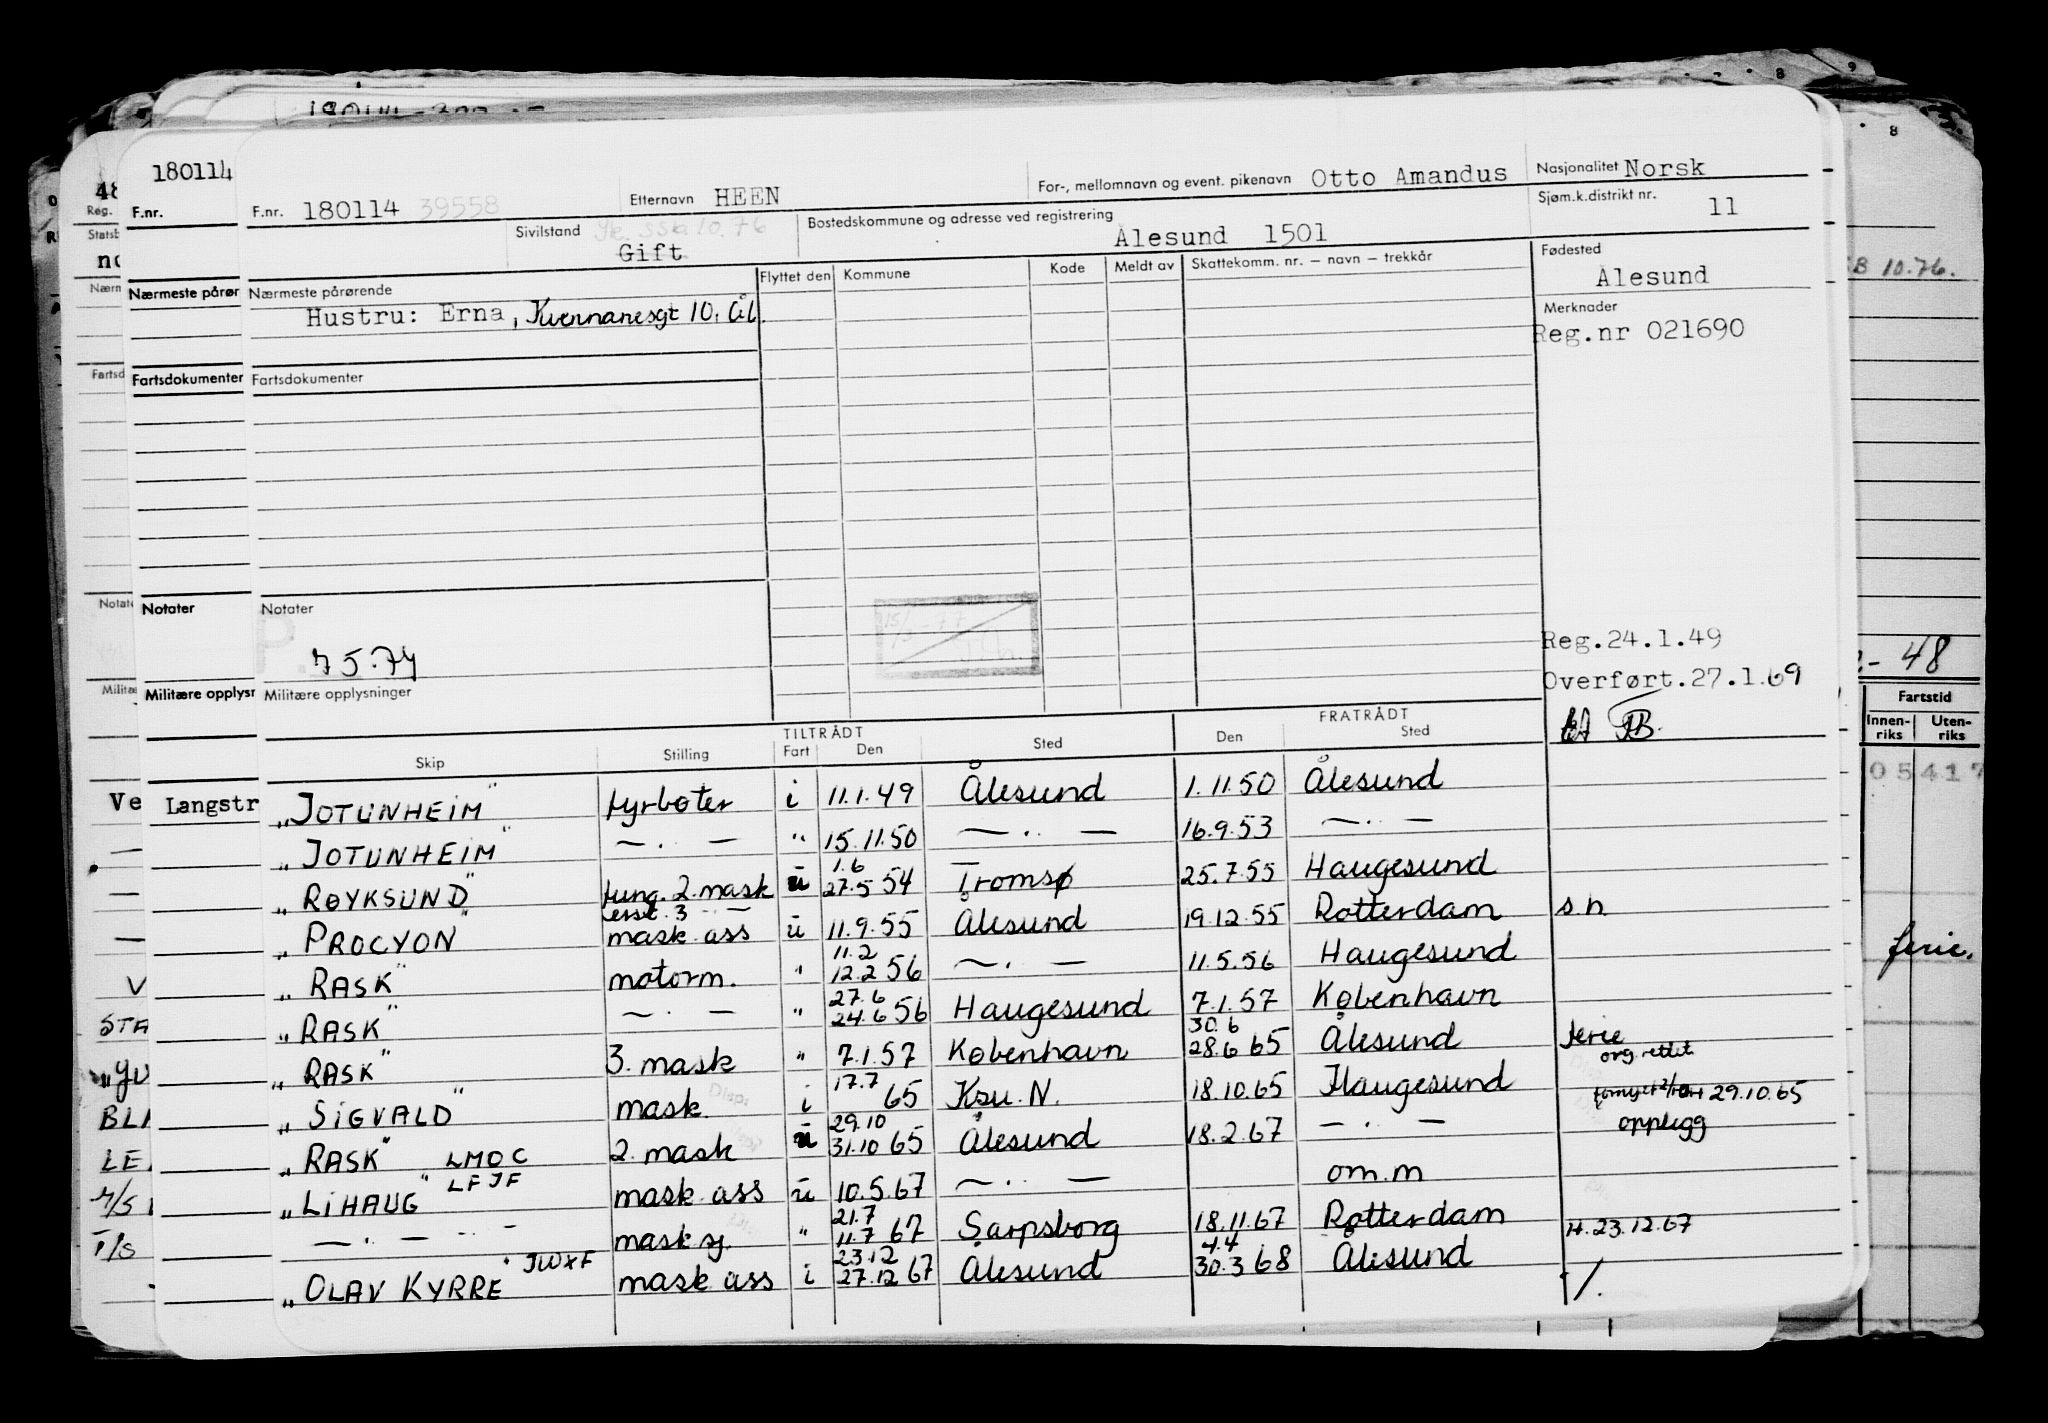 180114
F.nr. 180114 39558 Etternavn HEEN For-, mellomnavn og event. pikenavn Otto Amandus Nasjonalitet Norsk
Sivilstand Gift Bostedskommune og adresse ved registrering Ålesund 1501 Sjøm.k.distrikt nr. 11
Nærmeste pårørende Flyttet den Kommune Kode Meldt av Skattekomm. nr. – navn – trekkår Fødested Ålesund
Hustru: Erna, Kvennanesgt 10. Ål. Merknader
Reg.nr 021690
Fartsdokumenter
Notater
7 5.74
Reg.24.1.49
Militære opplysninger Overført.27.1.69
TILTRÅDT FRATRÅDT
Skip Stilling Fart Den Sted Den Sted
„JOTUNHEIM" fyrbøter i 11.1.49 Ålesund 1.11.50 Ålesund
„JOTUNHEIM" — . — " 15.11.50 — .. — 16.9.53 — . —
„RØYKSUND" fung. 2. mask ü 1.6 27.5 54 Tromsø 25.7.55 Haugesund
„PROCYON" erst. 3 — mask. ass ü 11.9.55 Ålesund 19.12.55 Rotterdam s.h.
„RASK" motorm. " 11.2 12.2 56 — . — 11.5.56 Haugesund
„RASK" — . — " 27.6 24.6 56 Haugesund 7.1.57 København
„RASK" 3. mask " 7.1.57 København 30.6 28.6 65 Ålesund ferie org. rettet
„SIGVALD" mask. i 17.7 65 Ksu. N. 18.10.65 Haugesund 29.10.65
„RASK" LMOC 2. mask ü 29.10 31.10 65 Ålesund 18.2.67 — . — opplegg
„LIHAUG" LFJF mask. ass ü 10.5.67 — . — om.m
— . — " — mask sj. " 21.7 11.7 67 Sarpsborg 18.11.67 Rotterdam H. 23.12.67
„OLAV KYRRE" JWXF mask ass i 23.12 27.12 67 Ålesund 4.4 30.3 68 Ålesund ·/.
F.nr.
Nærmeste pårør
Fartsdokumenter
Notater
Militære opplysn
Langstr
48
Reg.
Statsb
no
Nærm
Fartsd
Notate
Militæ
Ve
V
STA
BLA
LE
M/S
T/S
8
9
8
10.76.
48
Fartstid
Innen-riks Uten-riks
05417
ferie.